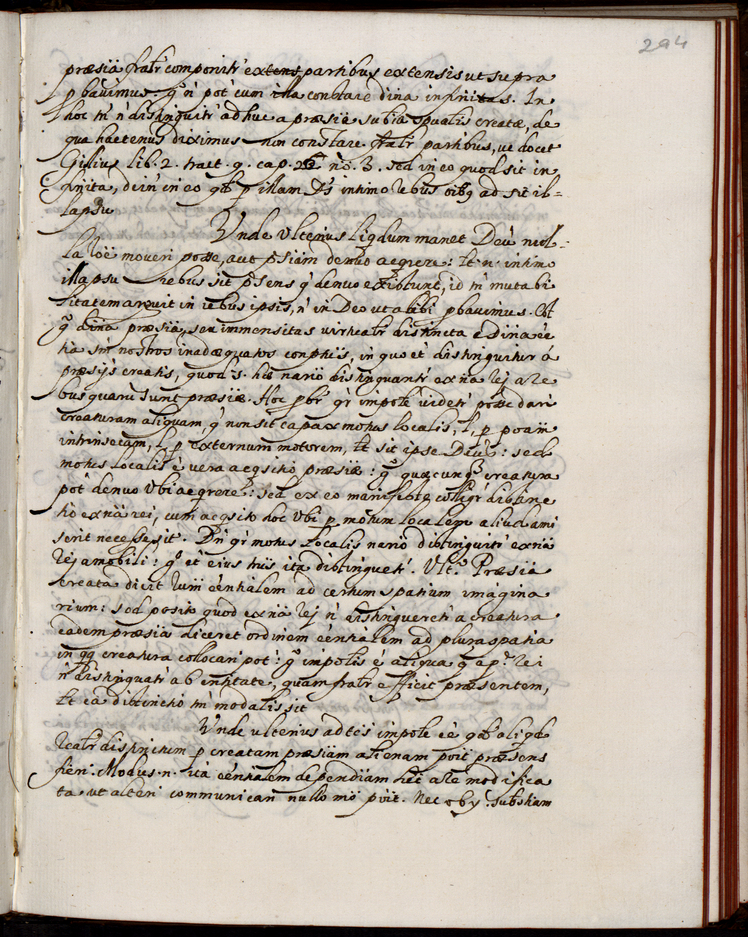 294
præsiã fratr componitr partibus extensis ut supra
pbavimus. gº n̄ pot cum illa constare dina infinitas. In
hoc tn̄ n̄ distinguitr adhuc a præsia subiæ spualis creatæ, de
qua hactenus diximus non constare fratr partibus, ut docet
Gilius lib. 2. tract. 9. cap. 26 no. 3. sed in eo quod sit in
finita, dein in eo qd p illam Ds intimo rebus oibq ad sit il-
lapsu
Unde Ulterius liqdum manet Deũ nul-
la rõe moveri posse, aut psiam denuo aqrere: Et .n. intimo
illapsu rebus sit psens q denuo existunt, id tn̄ mutabi
litatem arguit in rebus ipsis, n̄ in Deo ut alibi pbavimus. Est
gº dina præsia, seu immensitas virtualr distincta e Dina ẽẽ
tia sm̃ nostros inadæquatos conptus, in quo et distinguitur a
præsijs creatis, quod .s. hæ nario distinguantr ex nã rej a re
bus quarũ sunt præsiæ. Hoc pbr qr impole videtr posse dari
creaturam aliquam, q non sit capax motus localis, l. p poam
intrinsecam, l. p externum motorem, Et sit ipse Deus: sed
motus localis ẽ vera acqsitio præsiæ: gº quæcunq creatura
pot denuo Ubi aqrere: sed ex eo manifeste colligr distinc
tio ex nã rei, cum acqsito hoc Ubi p motum localem aliud ami
serit necesse sit. Dn̄ qr motus Localis nario distinguitr ex nã
rej amobili: gº et eius tmis ita distinguetr. Ult. Præsia
creata dicit tum ẽẽntialem ad certum spatium imagina
rium: sed posito quod ex nã rej n̄ distingueretr a creatura
eadem præsia diceret ordinem ẽẽntialem ad plura spatia
in qq creatura collocari pot: gº impolis ẽ aliqua q a pe rei
n̄ distinguatr ab entitate, quam fratr efficit præsentem,
Et ea distinctio tn̄ modalis sit
Unde ulterius adteś impole ẽẽ qd aliqd
realr distinctum p creatam præsiam alienam poss præsens
fieri. Modus .n. ita ẽẽntialem dependiam het a re modifica
ta ut alteri communicari nullo mõ poss. Nec oby substiam